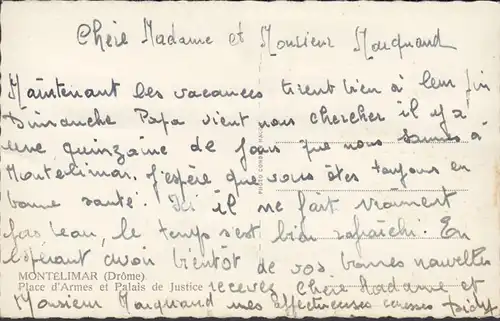 Chère Madame et Monsieur Marquand
Maintenant les vacances tirent bien à leur fin
Dimanche Papa vient nous chercher il y a
une quinzaine de jours que nous sommes à
Montélimar. j'espère que vous êtes toujours en
bonne santé. Ici il ne fait vraiment
pas beau, le temps s'est bien rafraîchi. En
espérant avoir bientôt de vos bonnes nouvelles
MONTELIMAR (Drôme)
recevez Chère Madame et
Place d'Armes et Palais de Justice
Monsieur Marquand mes affectueuses caresses